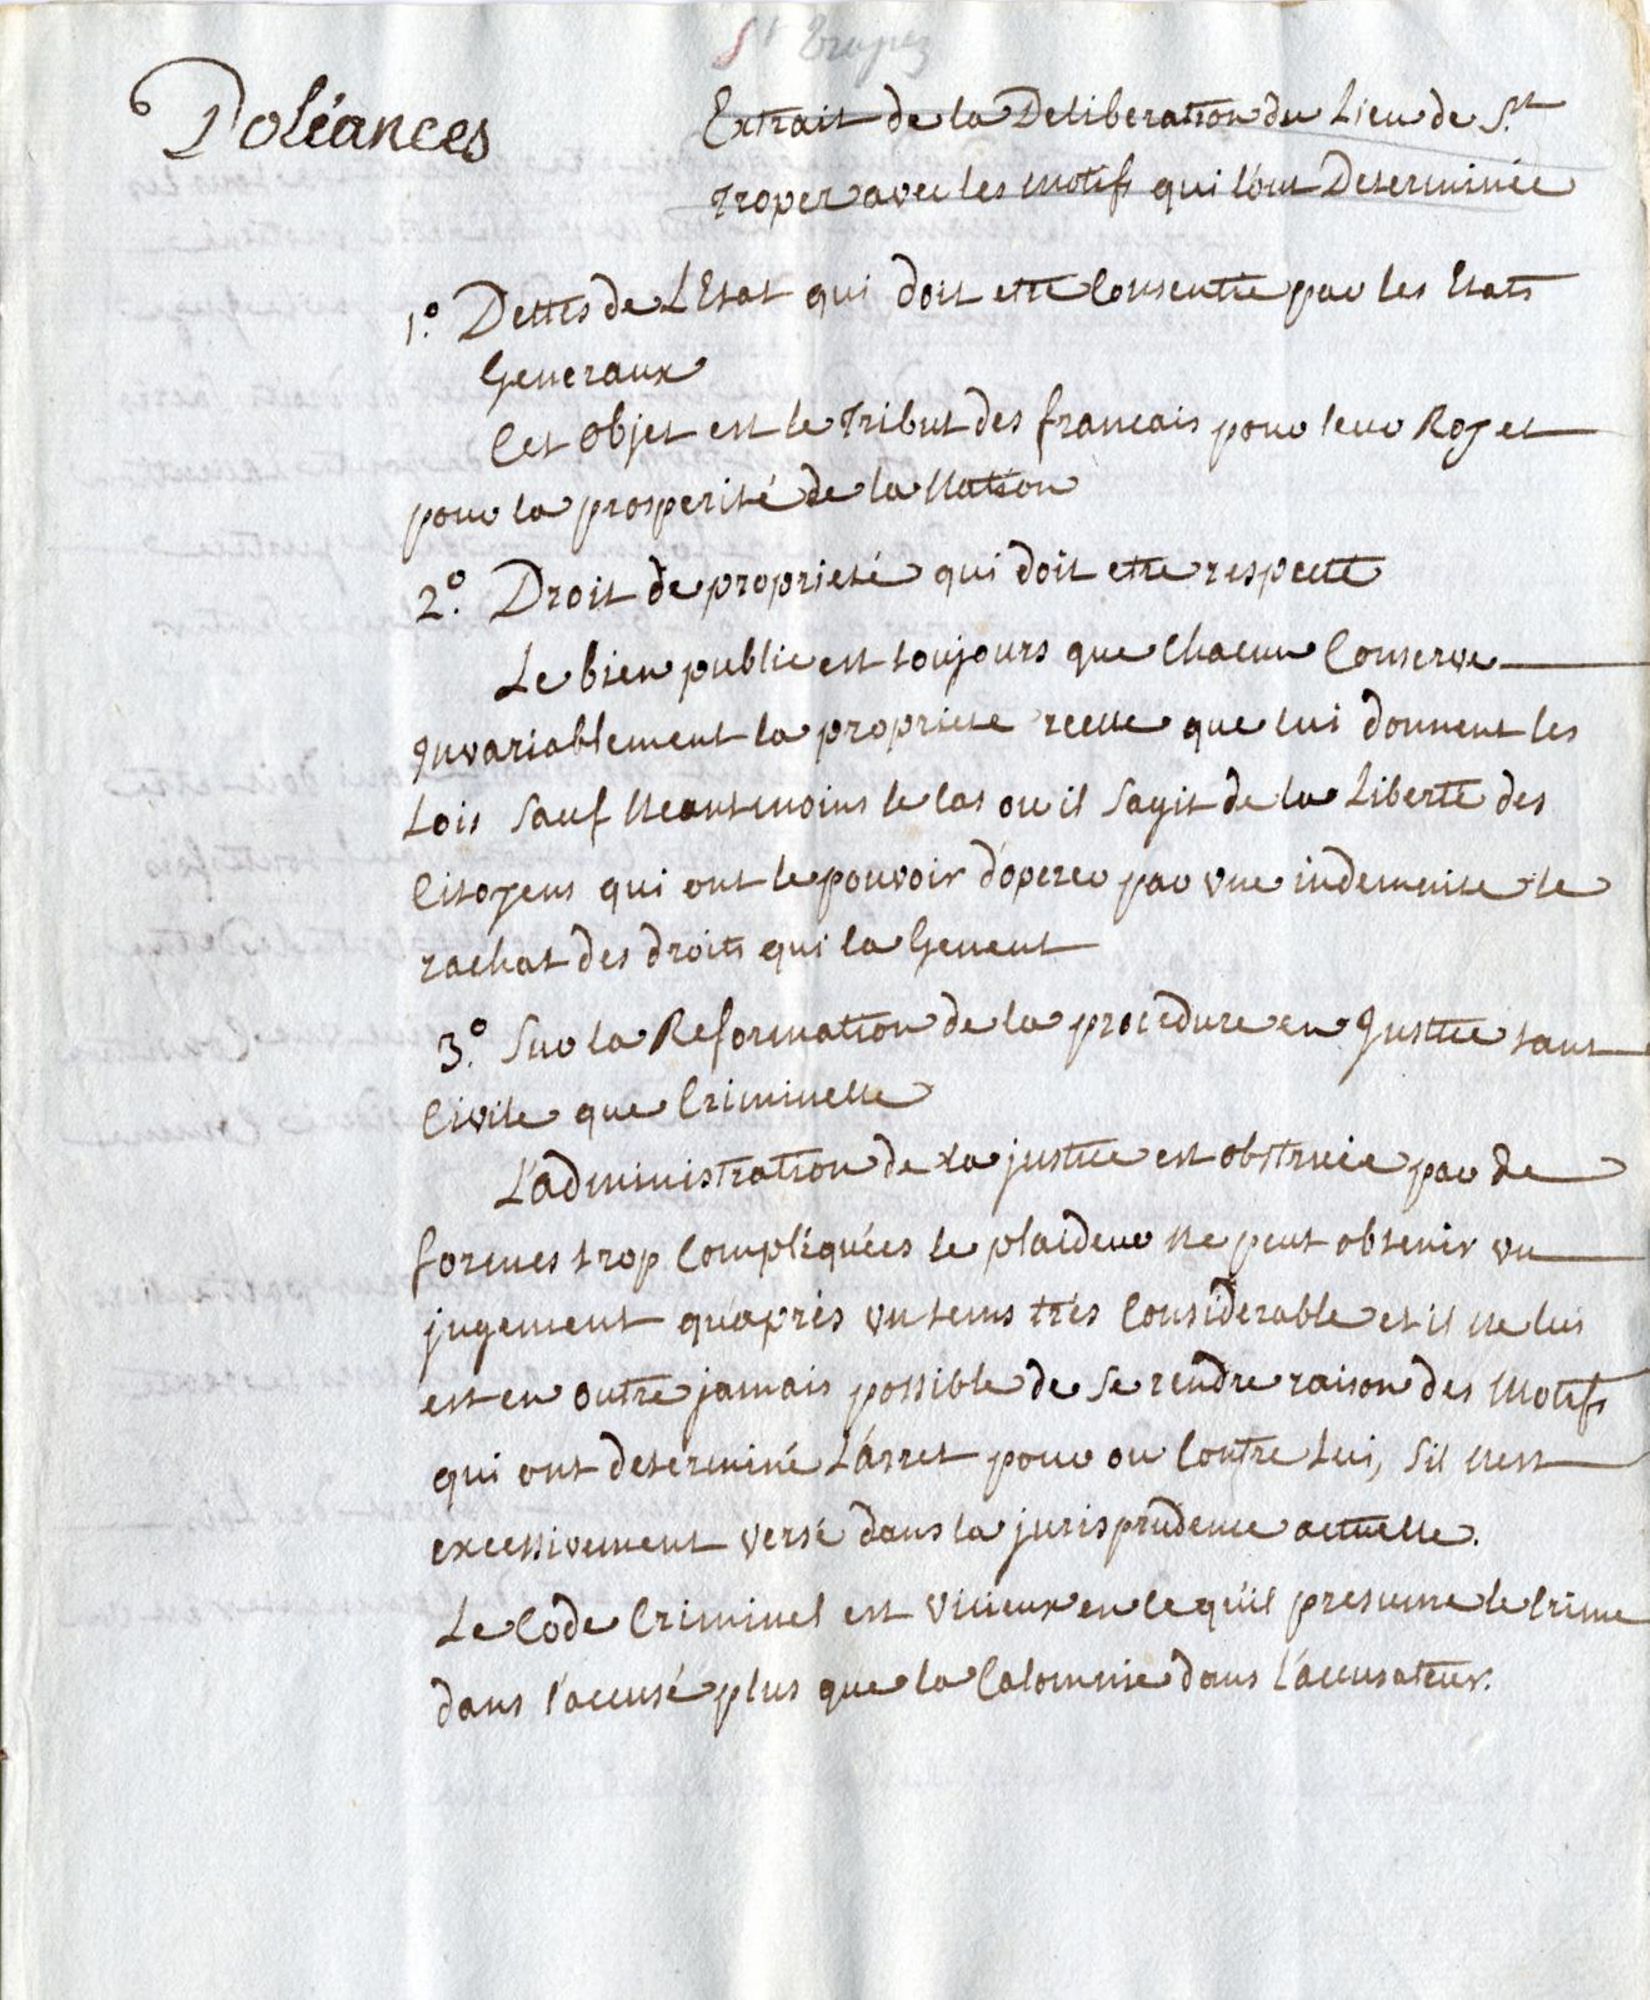 St Tropez
Doléances
Extrait de la Deliberation du Lieu de St
Tropez avec les motifs qui l'ont Determinée
1.º Dettes de L'Etat qui doit etre Consentie par les Etats
Generaux
Cet objet est le Tribut des francais pour leur Roy et
pour la prosperité de la Nation
2.º Droit de proprieté qui doit etre respecté
Le bien public est toujours que Chacun Conserve
Invariablement la propriete reelle que lui donnent les
Lois sauf Neantmoins le Cas ou il sagit de la Liberté des
Citoyens qui ont le pouvoir d'operer par une indemnite le
rachat des droits qui la Genent
3.º Sur la Reformation de la procedure en Justice tant
Civile que Criminelle
L'administration de la justice est obstruée par de
formes trop Compléquées le plaideur Ne peut obtenir un
jugement qu'aprés un tems trés Considerable et il ne lui
est en outre jamais possible de se rendre raison des Motifs
qui ont determiné L'arret pour ou Contre Lui, sil nest
excessivement versé dans la jurisprudence actuelle.
Le Code Criminel est vicieux en ce qu'il presume le Crime
dans l'accusé plus que la Calomnie dans l'accusateur.